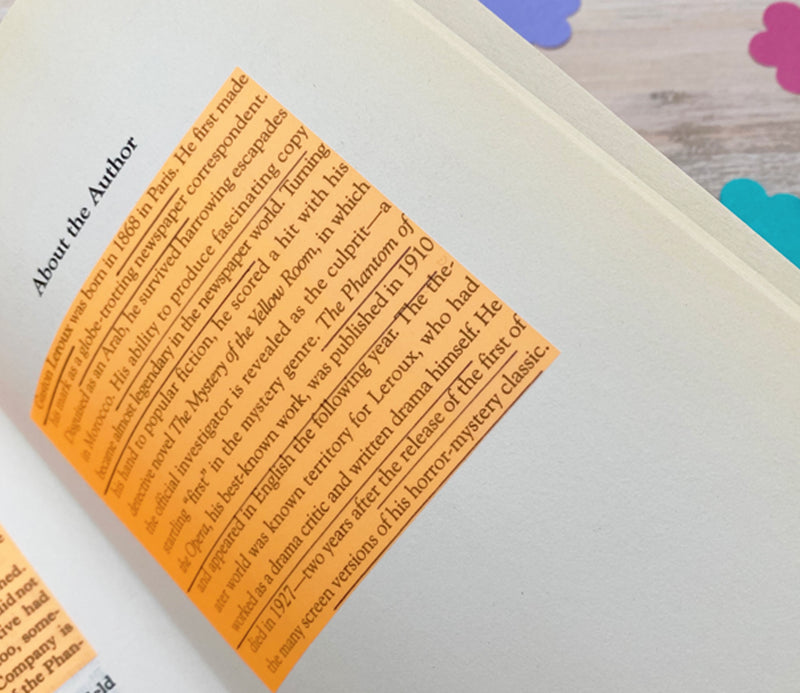 About the Author
Gaston Leroux was born in 1868 in Paris. He first made
his mark as a globe-trotting newspaper correspondent.
Disguised as an Arab, he survived harrowing escapades
in Morocco. His ability to produce fascinating copy
became almost legendary in the newspaper world. Turning
his hand to popular fiction, he scored a hit with his
detective novel The Mystery of the Yellow Room, in which
the official investigator is revealed as the culprit—a
startling “first” in the mystery genre. The Phantom of
the Opera, his best-known work, was published in 1910
and appeared in English the following year. The the-
ater world was known territory for Leroux, who had
worked as a drama critic and written drama himself. He
died in 1927—two years after the release of the first of
the many screen versions of his horror-mystery classic.
did not
had
too, some-
Company is
the Phan-